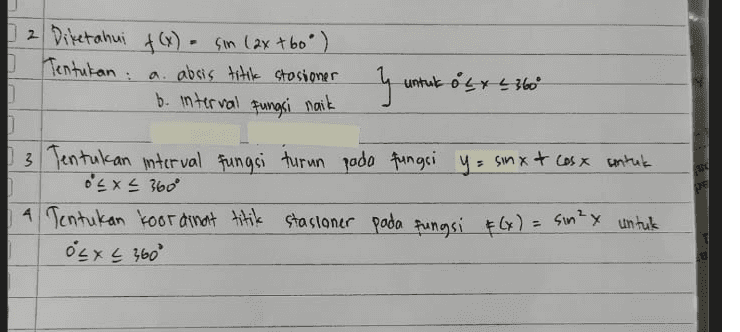 2 Diketahui f(x) = sin (2x + 60°)
Tentukan : a. absis titik stasioner
b. interval fungsi naik } untuk 0° ≤ x ≤ 360°
3 Tentukan interval fungsi turun pada fungsi y = sin x + cos x untuk
0° ≤ x ≤ 360°
4 Tentukan koordinat titik stasioner pada fungsi f(x) = sin² x untuk
0° ≤ x ≤ 360°